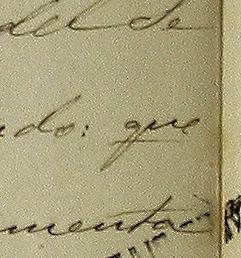 del de
ndo: que
menta